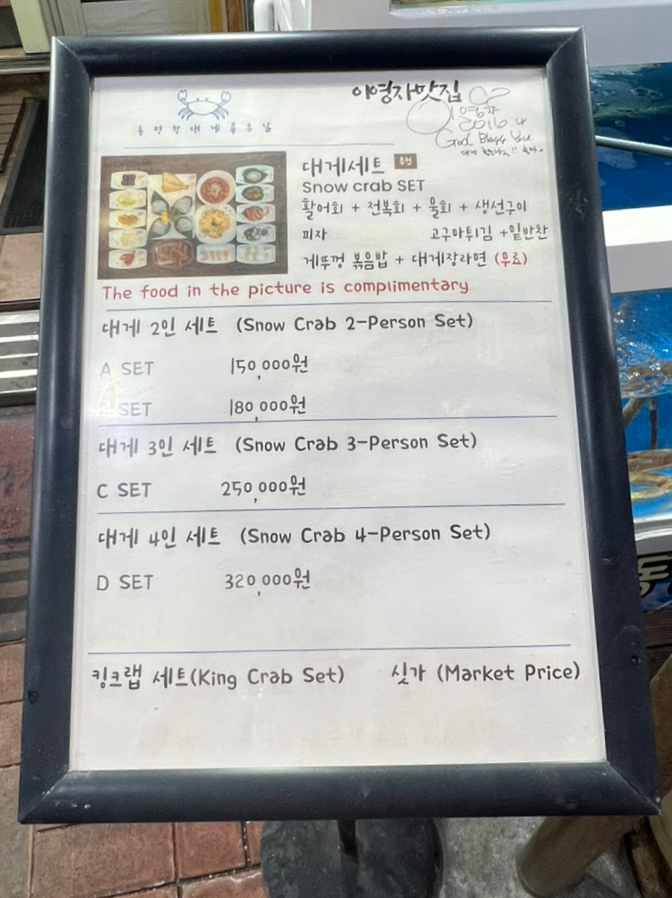 이영자맛집
이영자
2016.4
God Bless You.
대게세트 추천
Snow crab SET
활어회 + 전복회 + 물회 + 생선구이
피자 고구마튀김 +밑반찬
게뚜껑 볶음밥 + 대게장라면 (무료)
The food in the picture is complimentary
대게 2인 세트 (Snow Crab 2-Person Set)
A SET 150,000원
SET 180,000원
대게 3인 세트 (Snow Crab 3-Person Set)
C SET 250,000원
대게 4인 세트 (Snow Crab 4-Person Set)
D SET 320,000원
킹크랩 세트(King Crab Set) 싯가 (Market Price)